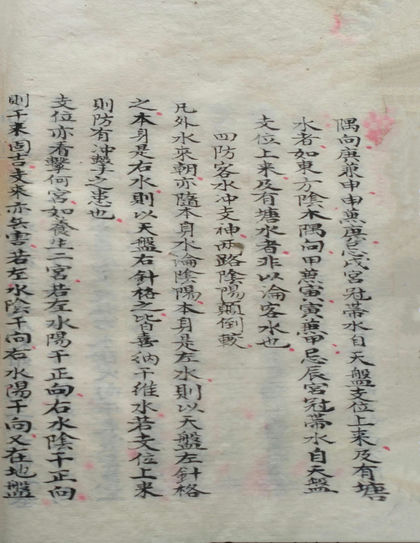 隅向庚兼申申兼庚忌戌宮冠帶水自天盤支位上來及有塘
水者如東方陰木隅向甲兼寅寅兼甲忌辰宮冠帶水自天盤
支位上來及有塘水者非以淪客水也
四防客水冲支神兩路陰陽顛倒輕
凡外水來朝亦隨本身水淪陰陽本身是左水則以天盤左針格
之本身是右水則以天盤右針格之皆喜納干維水若支位上來
則防有冲擊之患也
支位亦看擊何宮如養生二宮若左水陽干正向右水陰干正向
則干來固吉支來亦無害若左水陰干向右水陽干向又在地盤